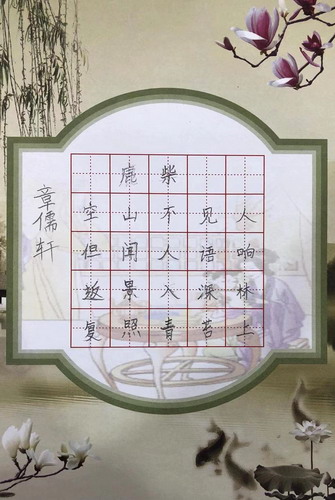 鹿柴
空山不见人
但闻人语响
返景入深林
复照青苔上
章儒轩